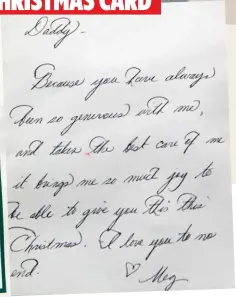 CHRISTMAS CARD
Daddy-
Because you have always
been so generous with me,
and taken the best care of me
it brings me so much joy to
be able to give you this this
Christmas. I love you to no
end.
♡ Meg